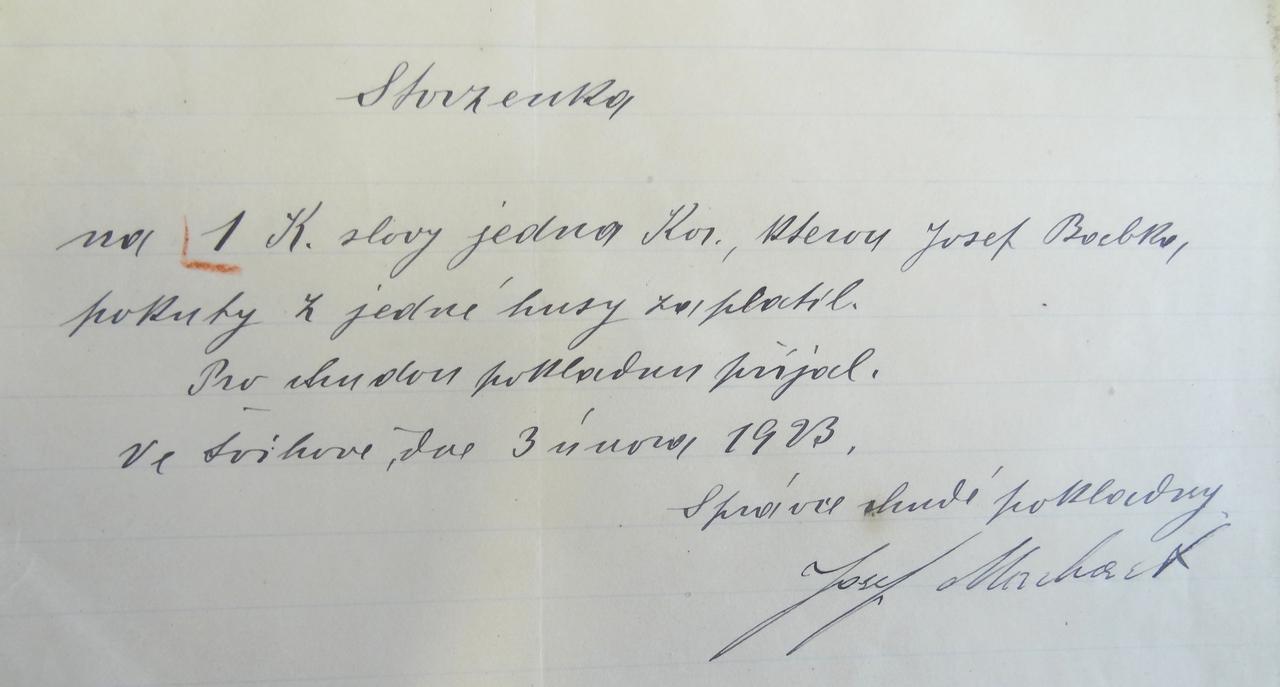 Stvrzenka
na 1 K. slovy jedna Kor., kterou Josef Babka,
pokuty z jedné husy zaplatil.
Pro chudou pokladnu přijal.
Ve Švihově, dne 3 února 1923.
Správce chudé pokladny
Josef